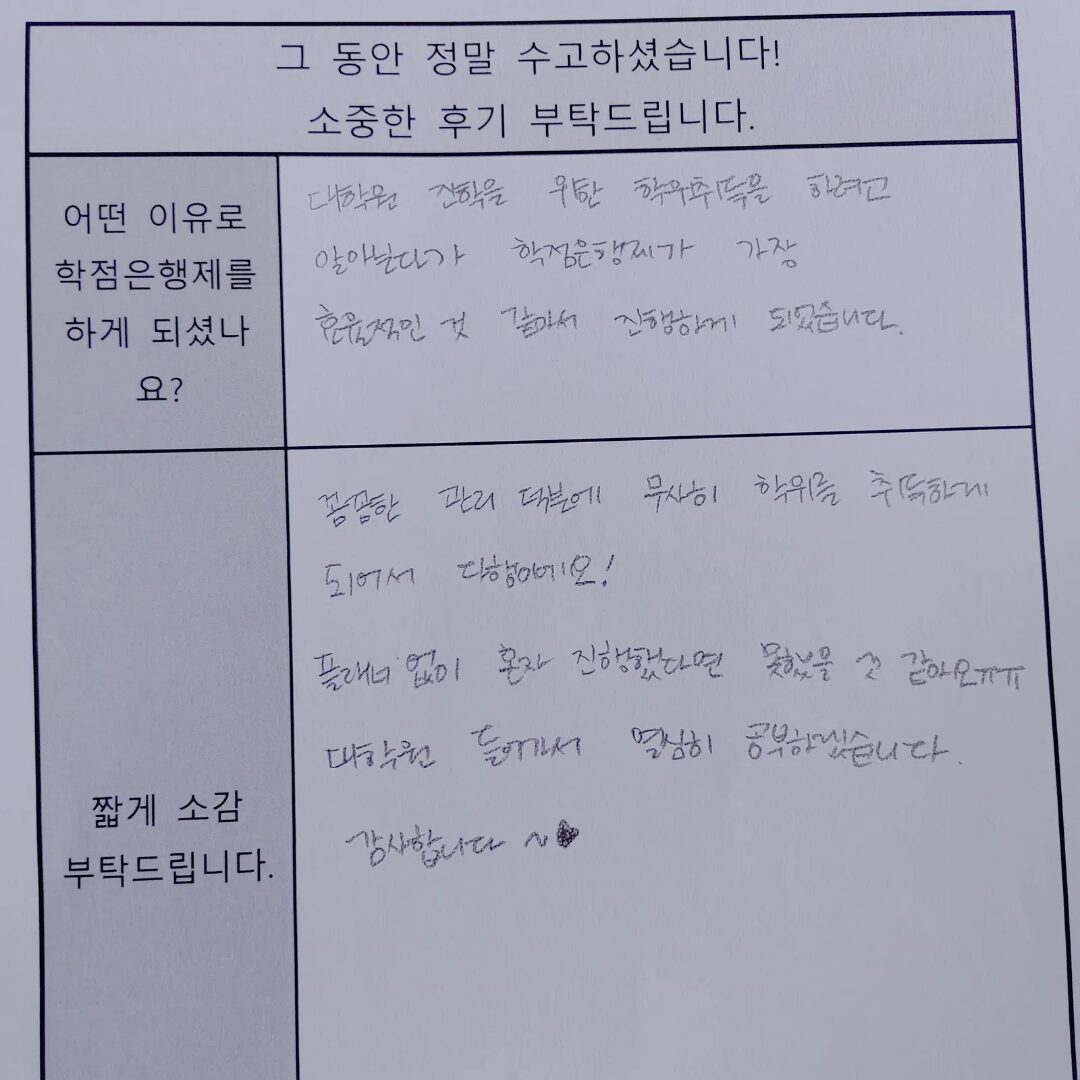 그 동안 정말 수고하셨습니다!
소중한 후기 부탁드립니다.
어떤 이유로
학점은행제를
하게 되셨나
요?
대학원 진학을 위한 학위취득을 하려고
알아보다가 학점은행제가 가장
효율적인 것 같아서 진행하게 되었습니다.
짧게 소감
부탁드립니다.
꼼꼼한 관리 덕분에 무사히 학위를 취득하게
되어서 다행이에요!
플래너 없이 혼자 진행했다면 못했을 것 같아요ㅠㅠ
대학원 들어가서 열심히 공부하겠습니다.
감사합니다 ~